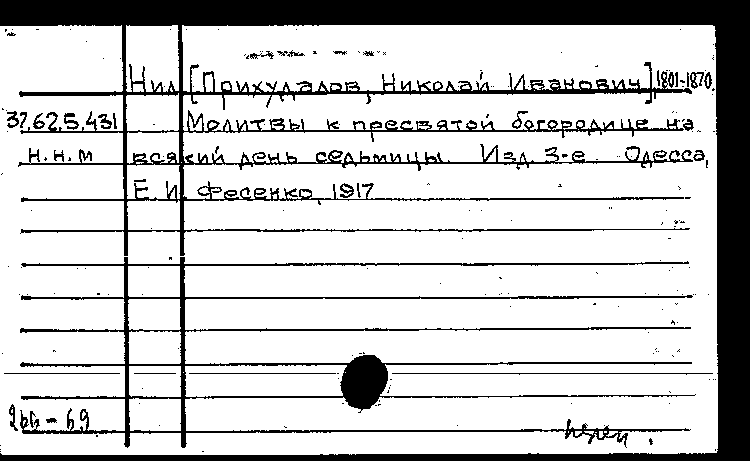 Нил [Прихудалов, Николай Иванович], 1801-1870.
37.62.5.431 Молитвы к пресвятой богородице на
н.н.м всякий день седьмицы. Изд. 3-е. Одесса,
Е. И. Фесенко, 1917
266-69